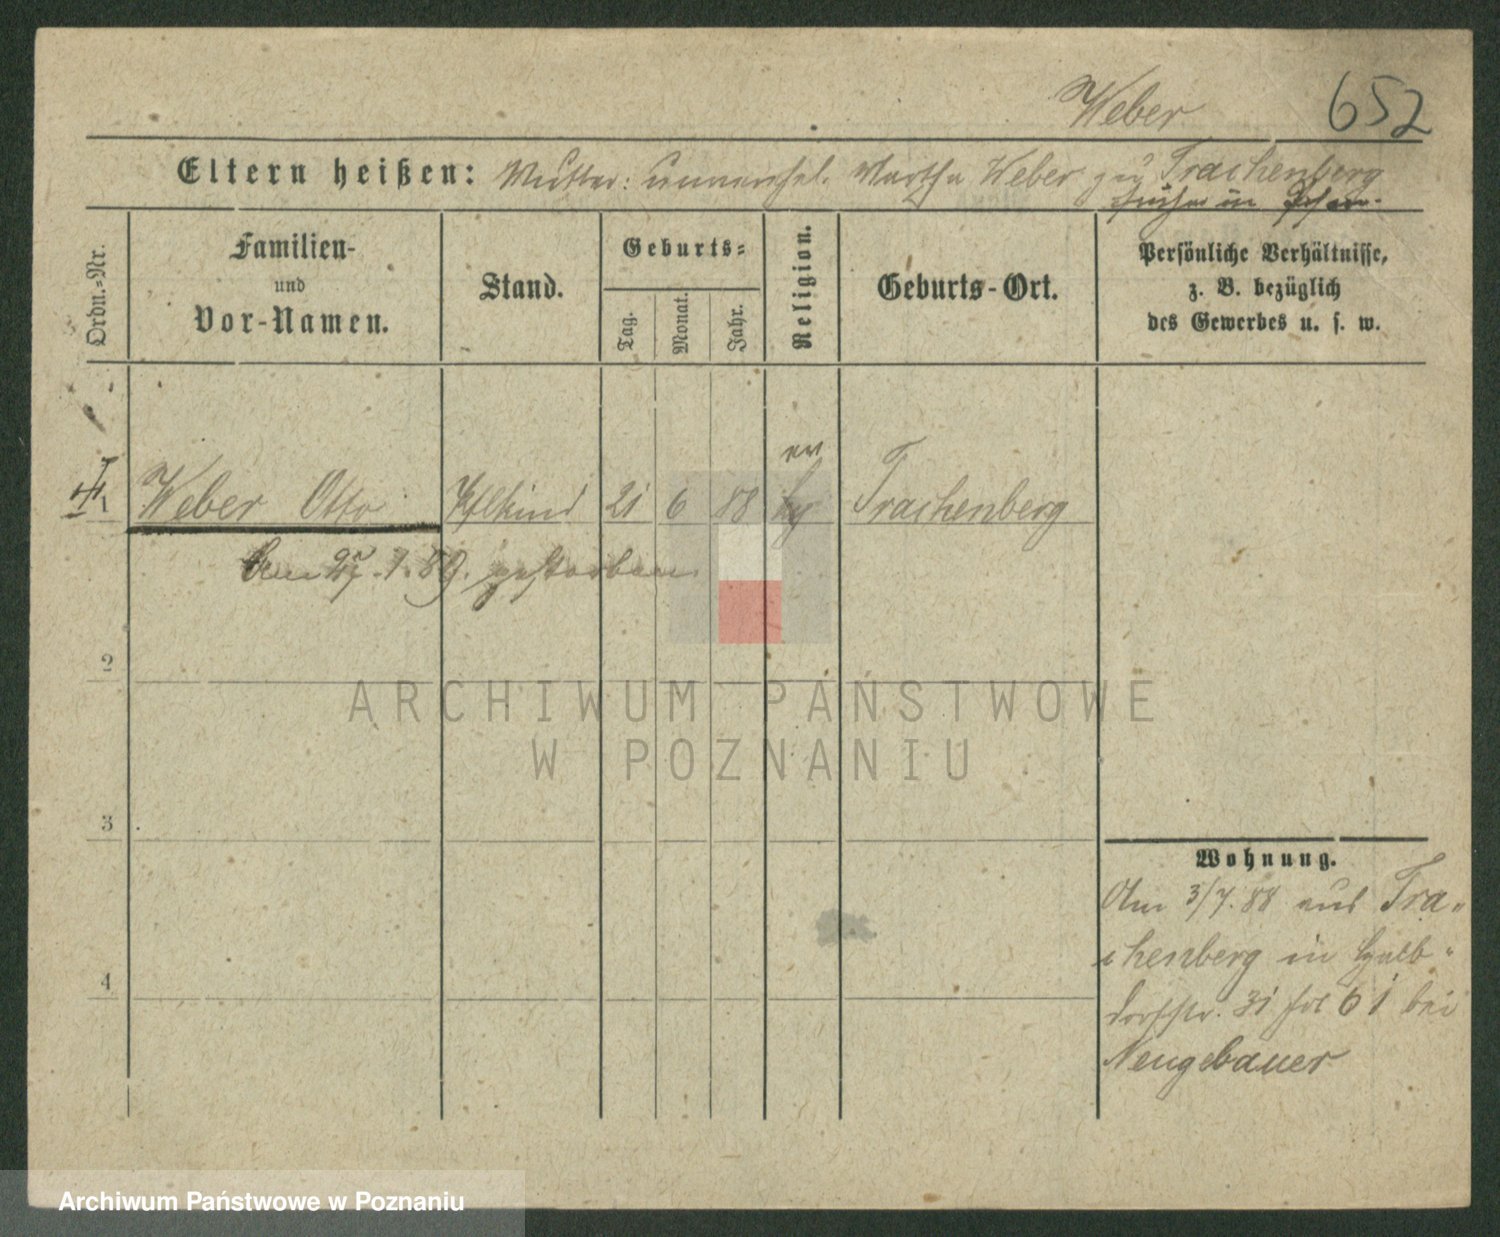 Weber 652
Eltern heißen: Mutter: unverehel. Martha Weber zu Trachenberg
früher in
Ordn.-Nr.
Familien-
und
Vor-Namen.
Stand.
Geburts-
Tag.
Monat.
Jahr.
Religion.
Geburts-Ort.
Persönliche Verhältnisse,
z. B. bezüglich
des Gewerbes u. s. w.
ev
1 Weber Otto 21 6 88 Trachenberg
Am 27.1.89. gestorben
2
3
4
Wohnung.
Am 3/7. 88 aus Tra-
chenberg in Halb-
dorfstr. 31 bei
Neugebauer
ARCHIWUM PAŃSTWOWE
W POZNANIU
Archiwum Państwowe w Poznaniu